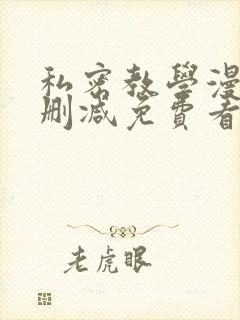 私密教學漫
刪減免費看
老虎眼